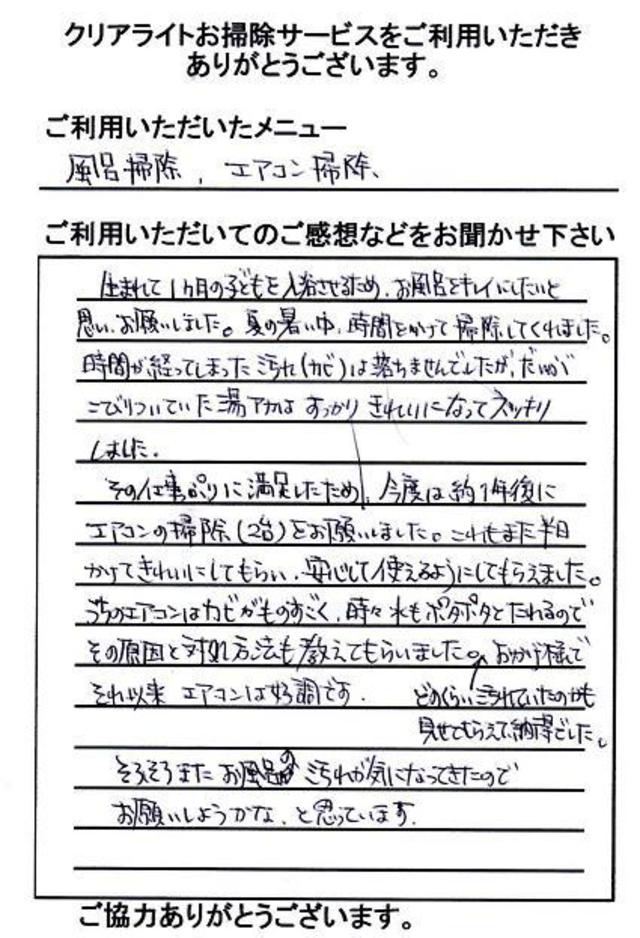 クリアライトお掃除サービスをご利用いただき
ありがとうございます。
ご利用いただいたメニュー
風呂掃除、エアコン掃除、
ご利用いただいてのご感想などをお聞かせ下さい
生まれて1ヵ月の子どもを入浴させるため、お風呂をキレイにしたいと
思い、お願いしました。夏の暑い中、時間をかけて掃除してくれました。
時間が経ってしまった汚れ(カビ)は落ちませんでしたが、だいぶ
こびりついていた湯アカは すっかり きれいになってスッキリ
しました。
その仕事っぷりに満足したため、今度は約1年後に
エアコンの掃除(2台)をお願いしました。これもまた半日
かけてきれいにしてもらい、安心して使えるようにしてもらえました。
うちのエアコンはカビがものすごく、時々水もポタポタとたれるので
その原因と対処方法も教えてもらいました。おかげ様で
それ以来 エアコンは好調です.
どのくらい汚れていたのかも
見せてもらえて、納得でした。
そろそろまた お風呂の汚れが気になってきたので
お願いしようかな、と思っています.
ご協力ありがとうございます。